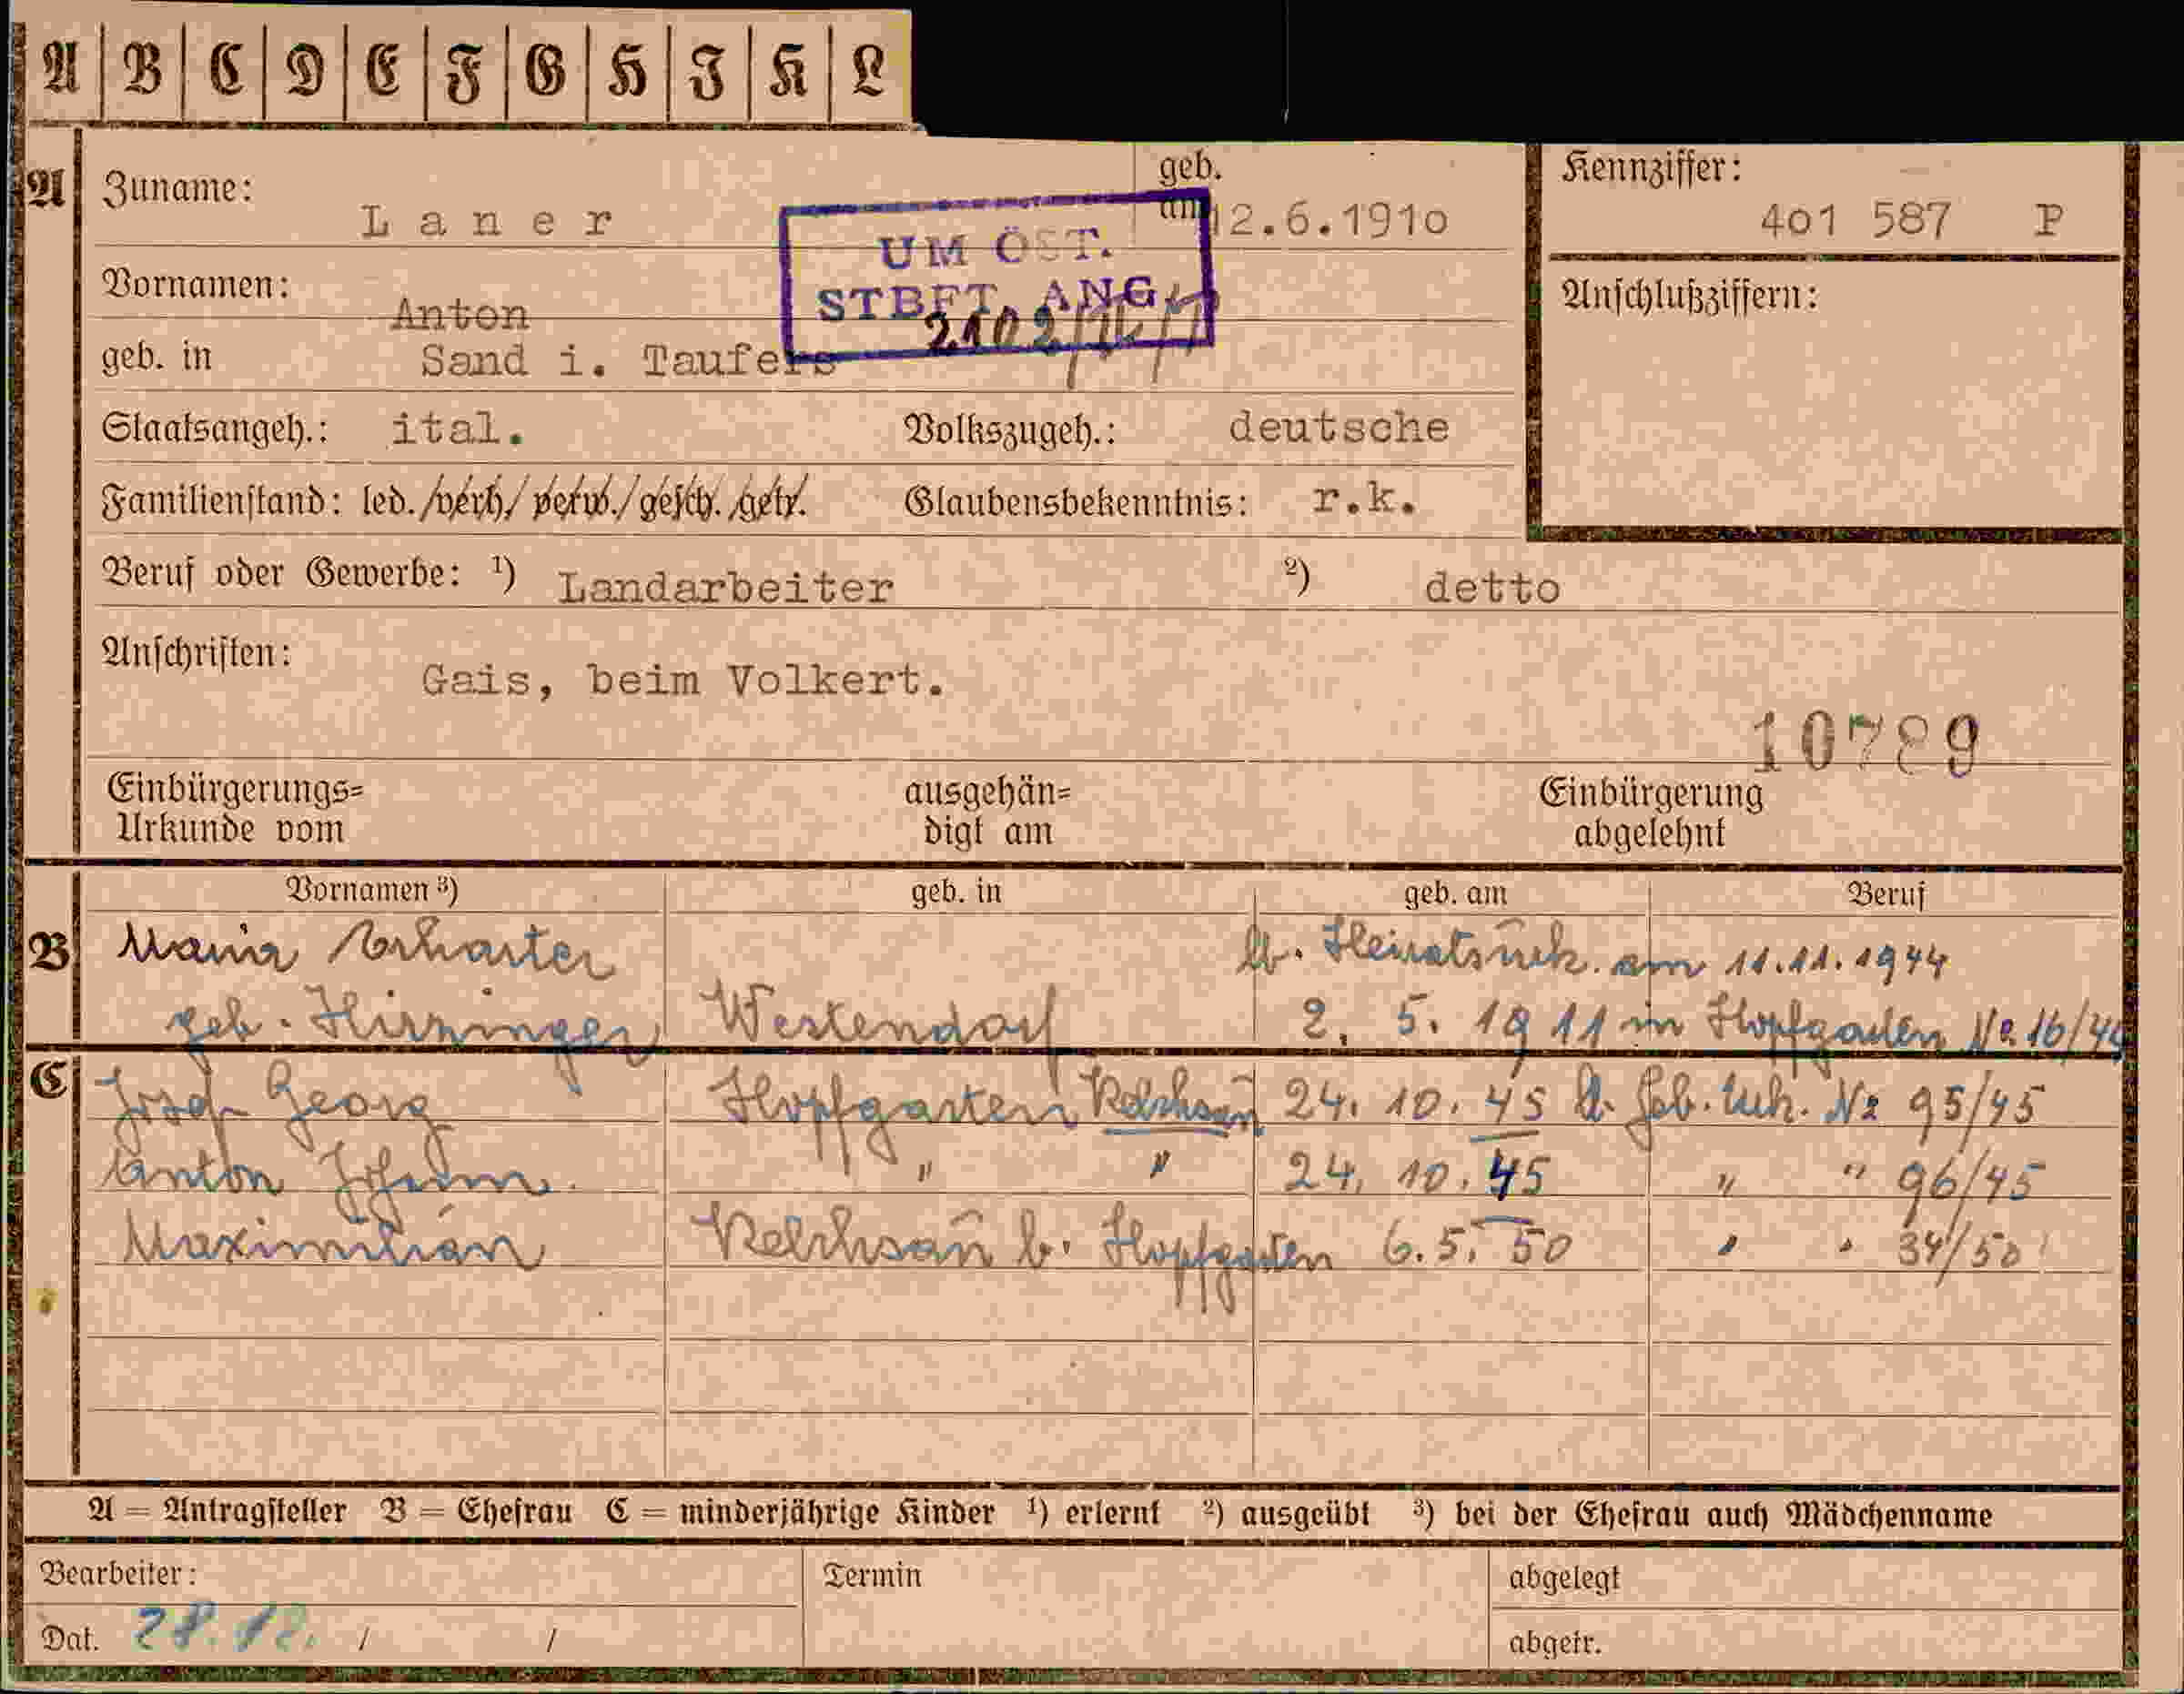 A B C D E F G H I K L
A Zuname: Laner geb. am 12.6.1910 Kennziffer: 401 587 P
UM ÖST. STBFT. ANG.
Vornamen: Anton Anschlußziffern:
geb. in Sand i. Taufers
Staatsangeh.: ital. Volkszugeh.: deutsche
Familienstand: led./verh/verw./gesch./getr. Glaubensbekenntnis: r.k.
Beruf oder Gewerbe: ¹) Landarbeiter ²) detto
Anschriften: Gais, beim Volkert.
10789
Einbürgerungs= ausgehän= Einbürgerung
Urkunde vom digt am abgelehnt
Vornamen ³) geb. in geb. am Beruf
B Maria Erharter lt. Heiratsurk. am 11.11.1944
geb. Hirzinger Westendorf 2. 5. 1911 in Hopfgarten No 16/44
C Josef Georg Hopfgarten Kelchsau 24. 10. 45 lt. Geb. Urk. No 95/45
Anton " " 24. 10. 45 " " 96/45
Maximilian Kelchsau b. Hopfgarten 6. 5. 50 " " 34/50
A = Antragsteller B = Ehefrau C = minderjährige Kinder ¹) erlernt ²) ausgeübt ³) bei der Ehefrau auch Mädchenname
Bearbeiter: Termin abgelegt
Dat. 28.12. / / abgetr.